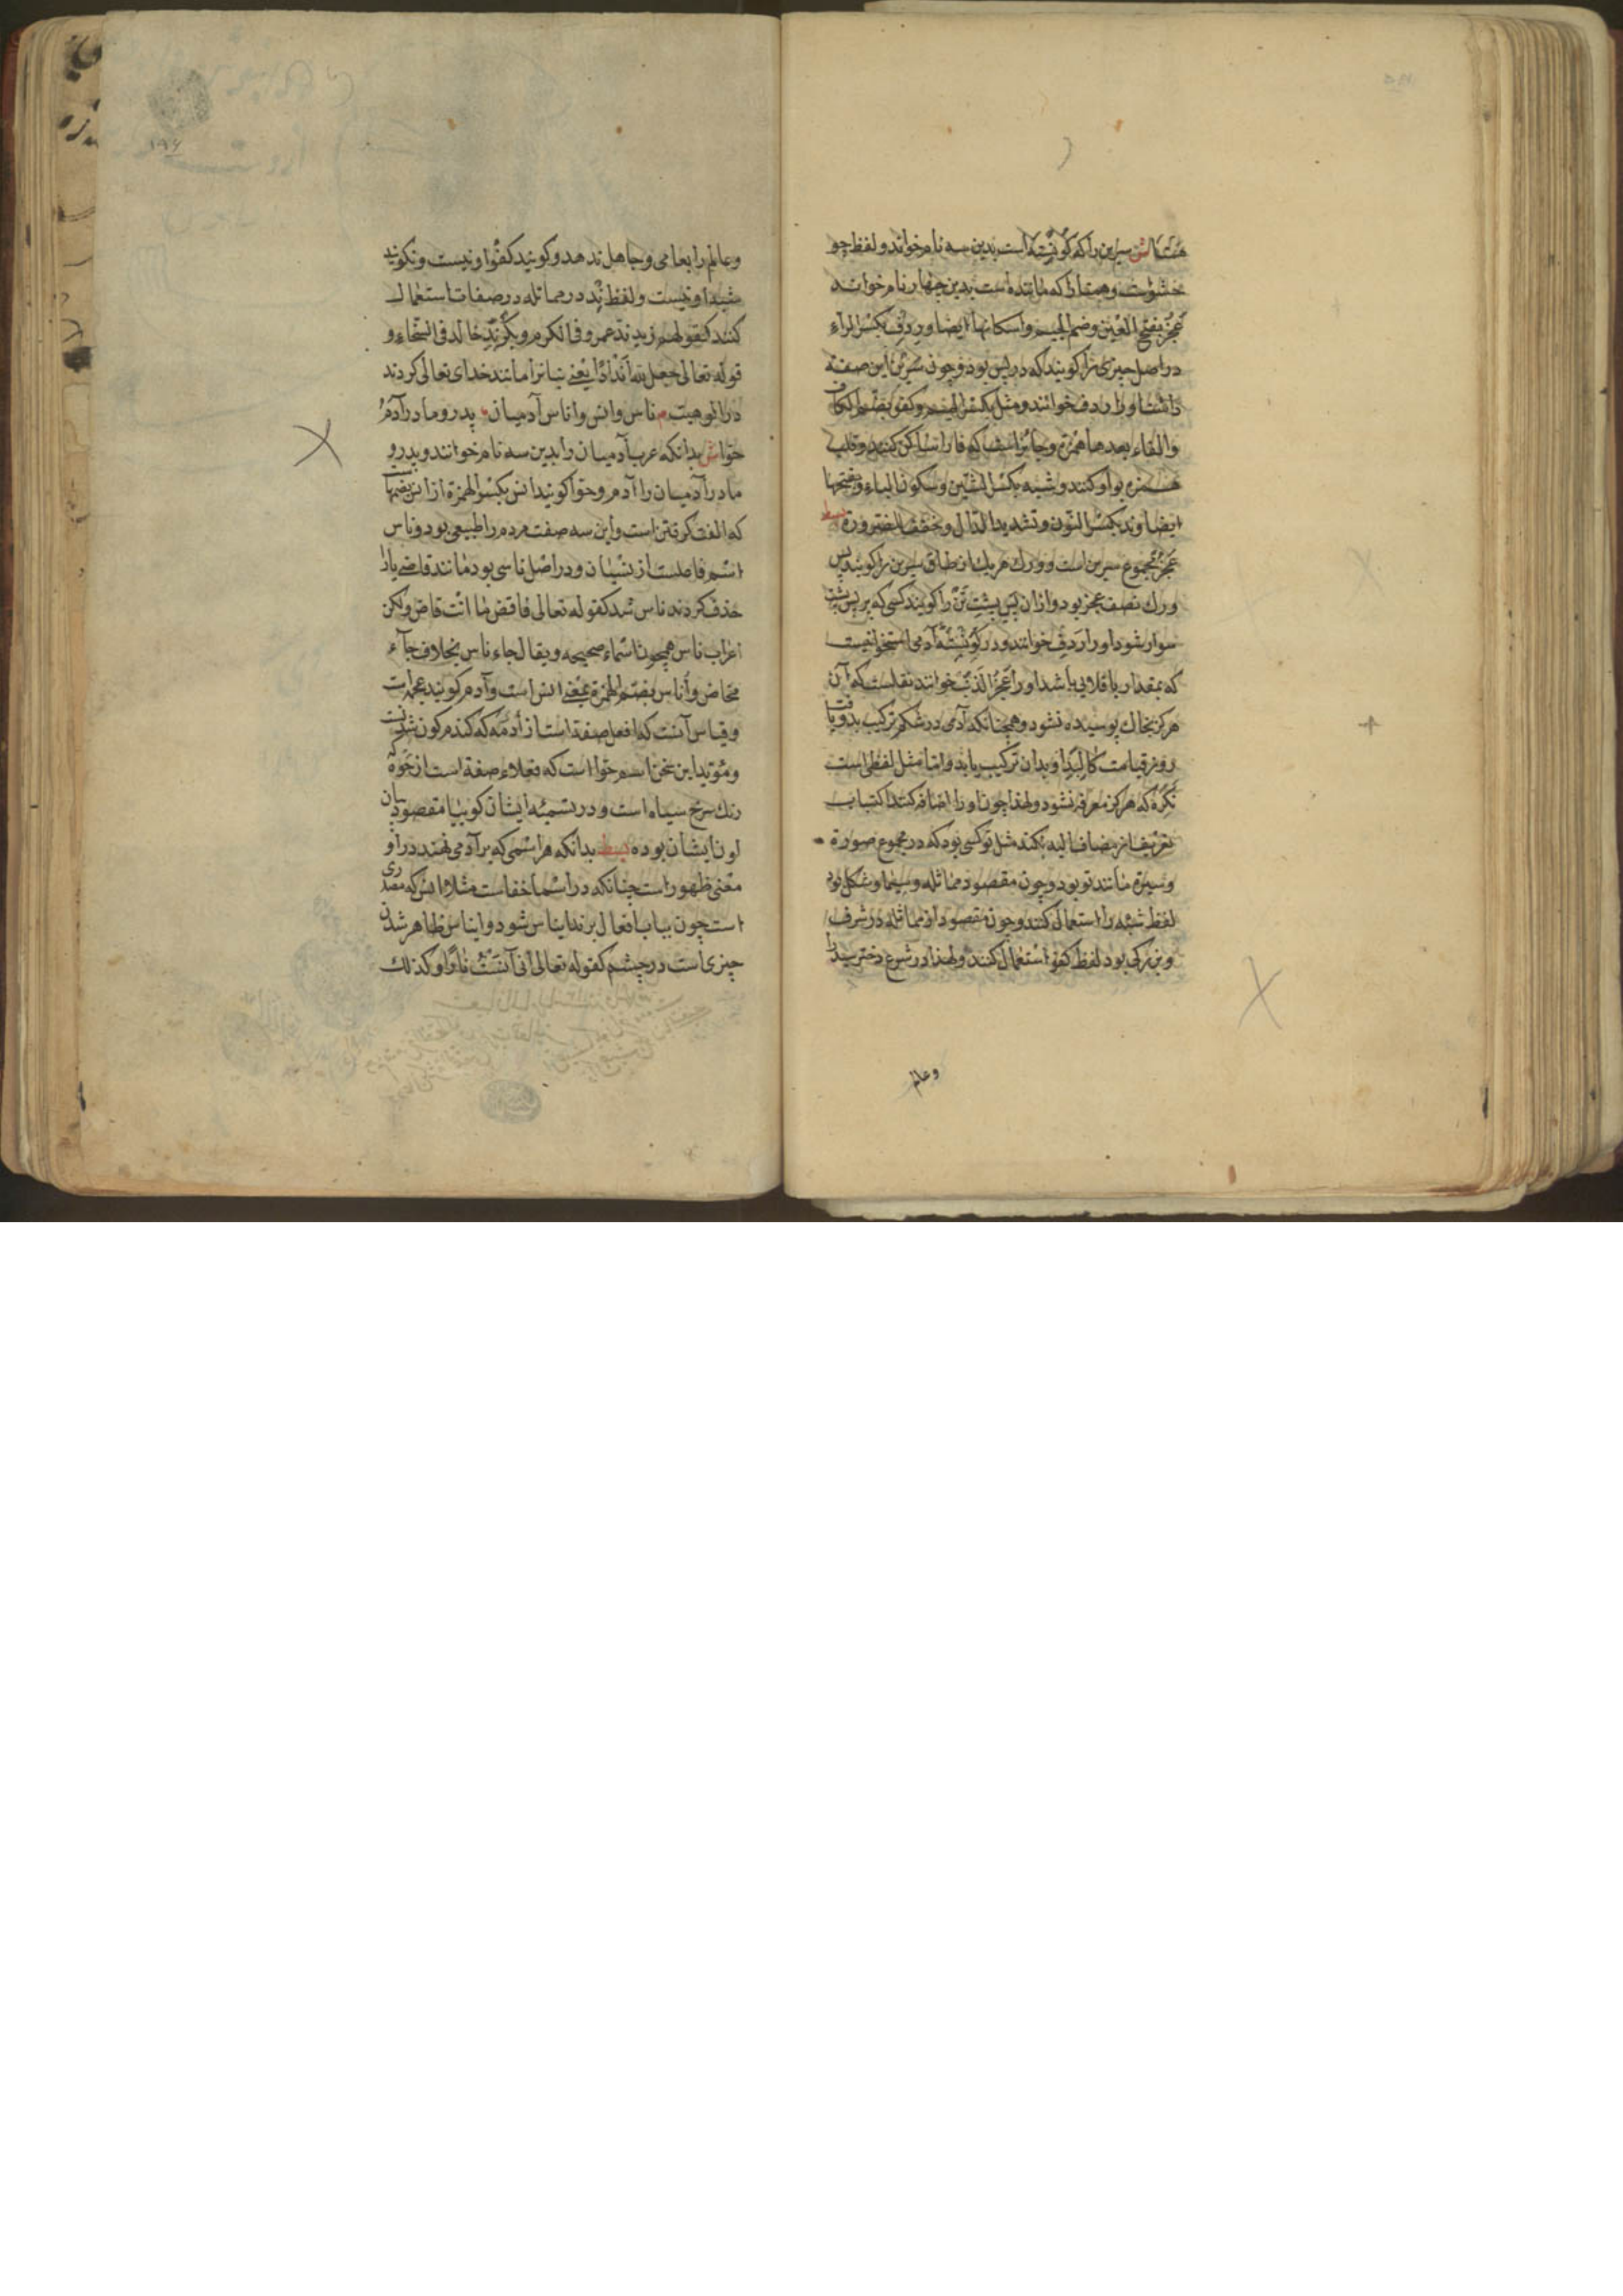 همتا ش سرین را که کونسته است بدین سه نام خواند و لفظ چو
خشوست و همتا را که ماننده است بدین چهار نام خوانند
عجز بفتح العین و ضم الجیم و اسکانها ایضا و ردف بکسر الراء
در اصل چیزی را کویند که در پس بود و چون سرین این صفة
داشت او را ردف خوانند و مثل بکسر المیم و کفو بضم الکاف
والفاء بعدها همزة و جایز است که فا را ساکن کنند و قلب
همزه بواو کنند و شبه بکسر الشین و سکون الباء و بفتحها
ایضا و ند بکسر النون و تشدید الدال و تخفف للضرورة بسط
عجز مجموع سرین است و ورک هر یک از طاق سرین را کویند پس
ورک نصف عجز بود و از ان پس پشت تن را کویند کسی که بر پس پشت
سوار شود او را ردف خوانند و در کونسته آدمی استخوانیست
که بمقدار باقلایی باشد او را عجز الذنب خوانند نقلست که آن
هرکز بخاک پوسیده نشود و همچنانکه آدمی در شکم ترکیب بدو یافت
روز قیامت کالبد او بدان ترکیب یابد و اما مثل لفظی است
نکره که هرکز معرفه نشود و لهذا چون او را اضافه کنند اکتساب
تعریف از مضاف الیه نکند مثل تو کسی بود که در مجموع صورة
و سیرة مانند تو بود و چون مقصود مماثله و سیما و شکل بود
لفظ شبه را استعمال کنند و چون مقصود از مماثله در شرف
و بزرکی بود لفظ کفو استعمال کنند و لهذا در شرع دختر سید را
وعالم
۱۹۶
وعالم را بعامی و جاهل ندهد و کویند کفوا و نیست و نکویند
شبه او نیست و لفظ ند در مماثله در صفات استعمال
کنند کقولهم زید ند عمرو فی الکرم و بکر ند خالد فی السخاء و
قوله تعالی جعل لله اندادا یعنی بتانرا مانند خدای تعالی کردند
در الوهیت م ناس و انس و اناس آدمیان پدر و مادر آدم
حوا ش بدانکه عرب آدمیان را بدین سه نام خوانند و پدر و
مادر آدمیان را آدم و حوا کویند انس بکسر الهمزة از انس بضمها
که الفت کرفتن است و این سه صفت مردم را طبیعی بود و ناس
اسم فاعلست از نسیان و در اصل ناسی بود مانند قاضی یا را
حذف کردند ناس شد کقوله تعالی فاقض ما انت قاض ولکن
اعراب ناس همچون اسماء صحیحه و یقال جاء ناس بخلاف جاء
قاض و اناس بضم الهمزة بمعنی انس است و آدم کویند عجمیست
و قیاس آنست که افعل صفة است از أدمة که کندم کون شدنست
و مؤید این سخن اسم حوا است که فعلاء صفة است از حوة که
رنک سرخ سیاه است و در تسمیه ایشان کوییا مقصود بیان
لون ایشان بوده بسط بدانکه هر اسمی که بر آدمی نهند در او
معنی ظهور است چنانکه در اسما خفاست مثلا انس که مصدری
است چون بباب افعال برند ایناس شود و ایناس ظاهر شدن
چیزی است در چشم کقوله تعالی انی آنست نارا و کذلک